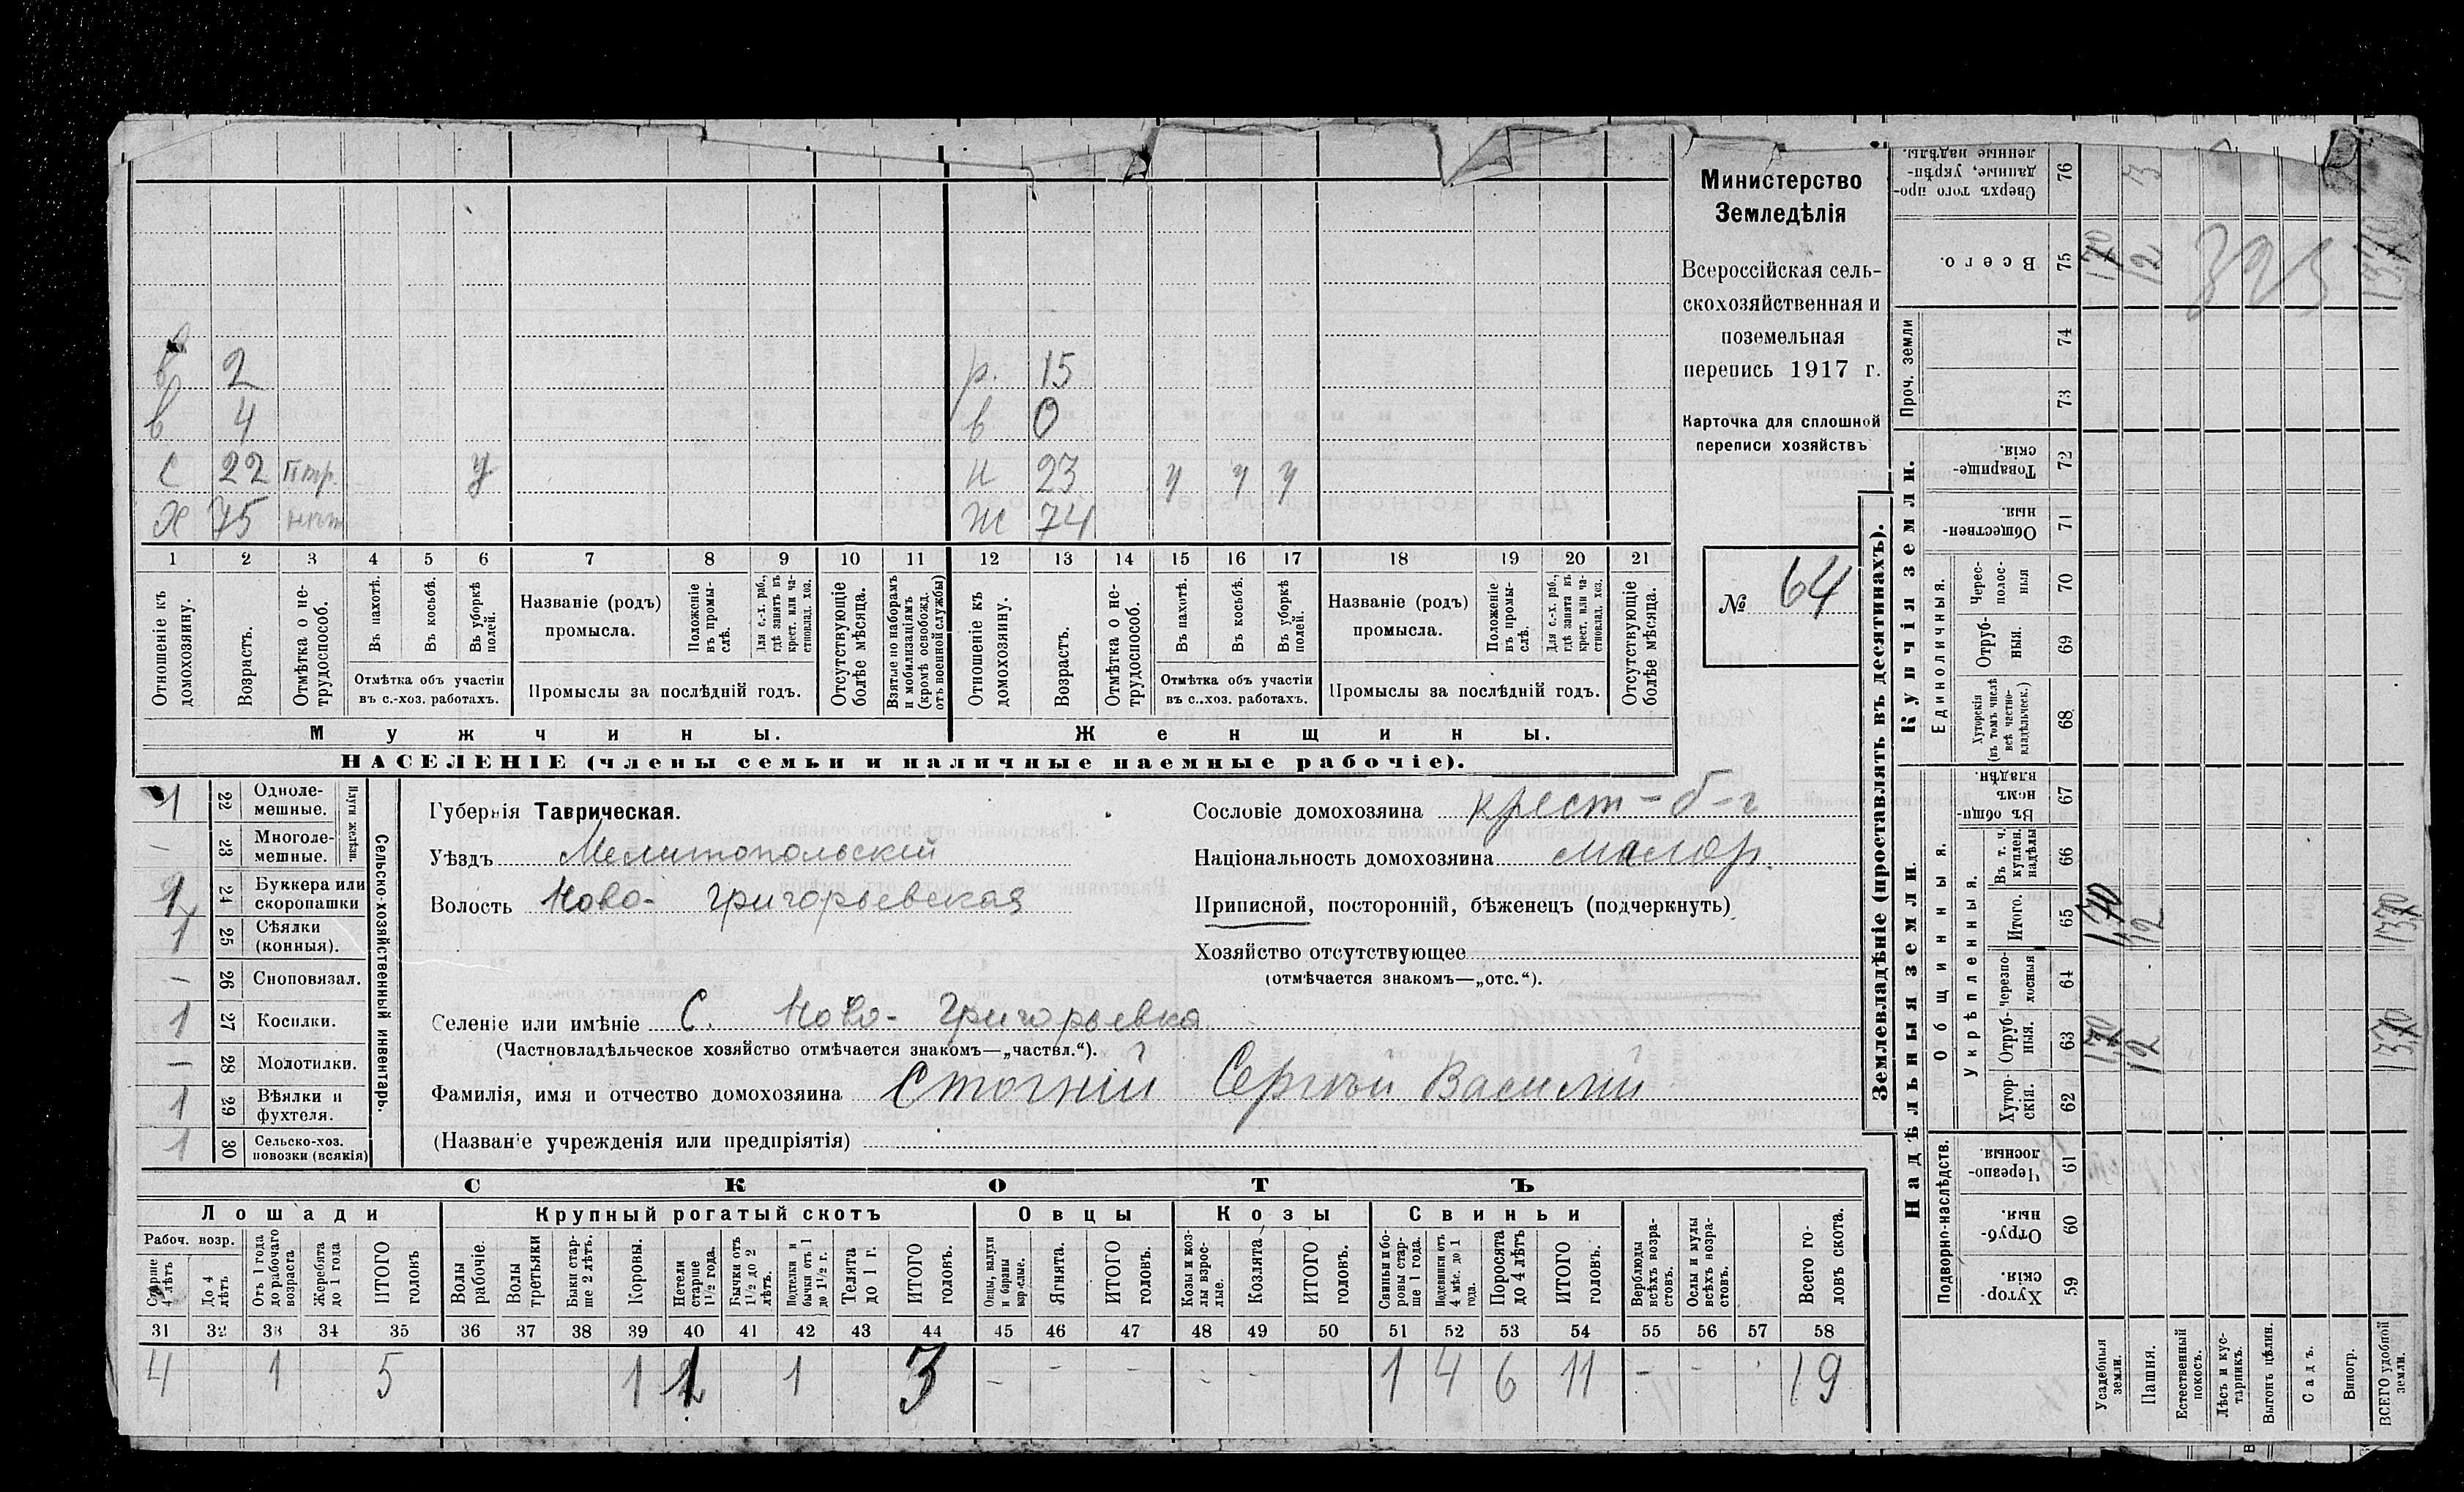 Министерство
Земледѣлія
Всероссійская сель-
скохозяйственная и
поземельная
перепись 1917 г.
Карточка для сплошной
переписи хозяйствъ
№ 64
в 2 р. 15
в 4 в 0
с 22 у н 23 у у у
Х 75 нѣт ж 74
1 2 3 4 5 6 7 8 9 10 11 12 13 14 15 16 17 18 19 20 21
Отношеніе къ домохозяину.
Возрастъ.
Отмѣтка о не-трудоспособ.
Въ пахотѣ.
Въ косьбѣ.
Въ уборкѣ полей.
Отмѣтка объ участіи
въ с.-хоз. работахъ.
Названіе (родъ)
промысла.
Положеніе въ промы-слѣ.
Для с.-х. раб., гдѣ занятъ въ крест. или ча-стновлад. хоз.
Промыслы за послѣдній годъ.
Отсутствующіе болѣе мѣсяца.
Взятые по наборамъ и мобилизаціямъ (кромѣ освобожд. отъ военной службы)
Отношеніе къ домохозяину.
Возрастъ.
Отмѣтка о не-трудоспособ.
Въ пахотѣ.
Въ косьбѣ.
Въ уборкѣ полей.
Отмѣтка объ участіи
въ с.-хоз. работахъ.
Названіе (родъ)
промысла.
Положеніе въ промы-слѣ.
Для с.-х. раб., гдѣ занята въ крест. или ча-стновлад. хоз.
Промыслы за послѣдній годъ.
Отсутствующіе болѣе мѣсяца.
Мужчины. Женщины.
НАСЕЛЕНІЕ (члены семьи и наличные наемные рабочіе).
Сельско-хозяйственный инвентарь.
Плуги желѣзн.
1 22 Одноле-мешные.
– 23 Многоле-мешные.
1 24 Буккера или скоропашки
1 25 Сѣялки (конныя).
– 26 Сноповязал.
1 27 Косилки.
– 28 Молотилки.
1 29 Вѣялки и фухтеля.
1 30 Сельско-хоз. повозки (всякія)
Губернія Таврическая.
Уѣздъ Мелитопольскій
Волость Ново-Григорьевская
Сословіе домохозяина крест-б-г
Національность домохозяина малор.
Приписной, посторонній, бѣженецъ (подчеркнуть)
Хозяйство отсутствующее
(отмѣчается знакомъ—„отс.“).
Селеніе или имѣніе С. Ново-Григорьевка
(Частновладѣльческое хозяйство отмѣчается знакомъ—„частвл.“).
Фамилія, имя и отчество домохозяина Стогній Сергѣй Василій
(Названіе учрежденія или предпріятія)
СКОТЪ
Лошади Крупный рогатый скотъ Овцы Козы Свиньи
Рабоч. возр.
Старше 4 лѣтъ
До 4 лѣтъ
Отъ 1 года до рабочаго возраста
Жеребята до 1 года
ИТОГО головъ
Волы рабочіе.
Волы третьяки
Быки стар-ше 2 лѣтъ.
Коровы.
Нетели старше 1½ года.
Бычки отъ 1½ до 2 лѣтъ.
Подтелки и бычки отъ 1 до 1½ г.
Телята до 1 г.
ИТОГО головъ.
Овцы, валухи и бараны взрослые.
Ягнята.
ИТОГО головъ.
Козы и коз-лы взрос-лые.
Козлята.
ИТОГО головъ.
Свиньи и бо-ровы стар-ше 1 года.
Подсвинки отъ 4 мѣс. до 1 года.
Поросята до 4 лѣтъ
ИТОГО головъ.
Верблюды всѣхъ возра-стовъ.
Ослы и мулы всѣхъ возра-стовъ.
Всего го-ловъ скота.
31 32 33 34 35 36 37 38 39 40 41 42 43 44 45 46 47 48 49 50 51 52 53 54 55 56 57 58
4 1 5 1 1 1 3 – – – – – 1 4 6 11 – – 19
Землевладѣніе (проставлять въ десятинахъ).
Надѣльныя земли.
Купчія земли.
Проч. земли
Подворно-наслѣдств.
Общинныя.
Укрѣпленныя.
Единоличныя.
Сверхъ того про-данные, укрѣп-ленные надѣлы. 76 3
Всего. 75 12
74
73
Товарище-скія. 72
Обществен-ныя. 71
Черес-полос-ныя 70
Отруб-ныя. 69
Хуторскія (въ томъ числѣ всѣ частно-владѣльческ.) 68
Въ общи-номъ владѣн. 67
Въ т. ч. куплен. надѣлы 66
Итого. 65 12
Черезпо-лосныя 64
Отруб-ныя. 63 12
Хутор-скія. 62
Черезпо-лосныя. 61
Отруб-ныя. 60
Хутор-скія. 59
Усадебныя земли.
Пашня.
Естественный покосъ.
Лѣсъ и кус-тарникъ.
Выгонъ цѣлин.
Садъ.
Виногр.
ВСЕГО удобной земли.